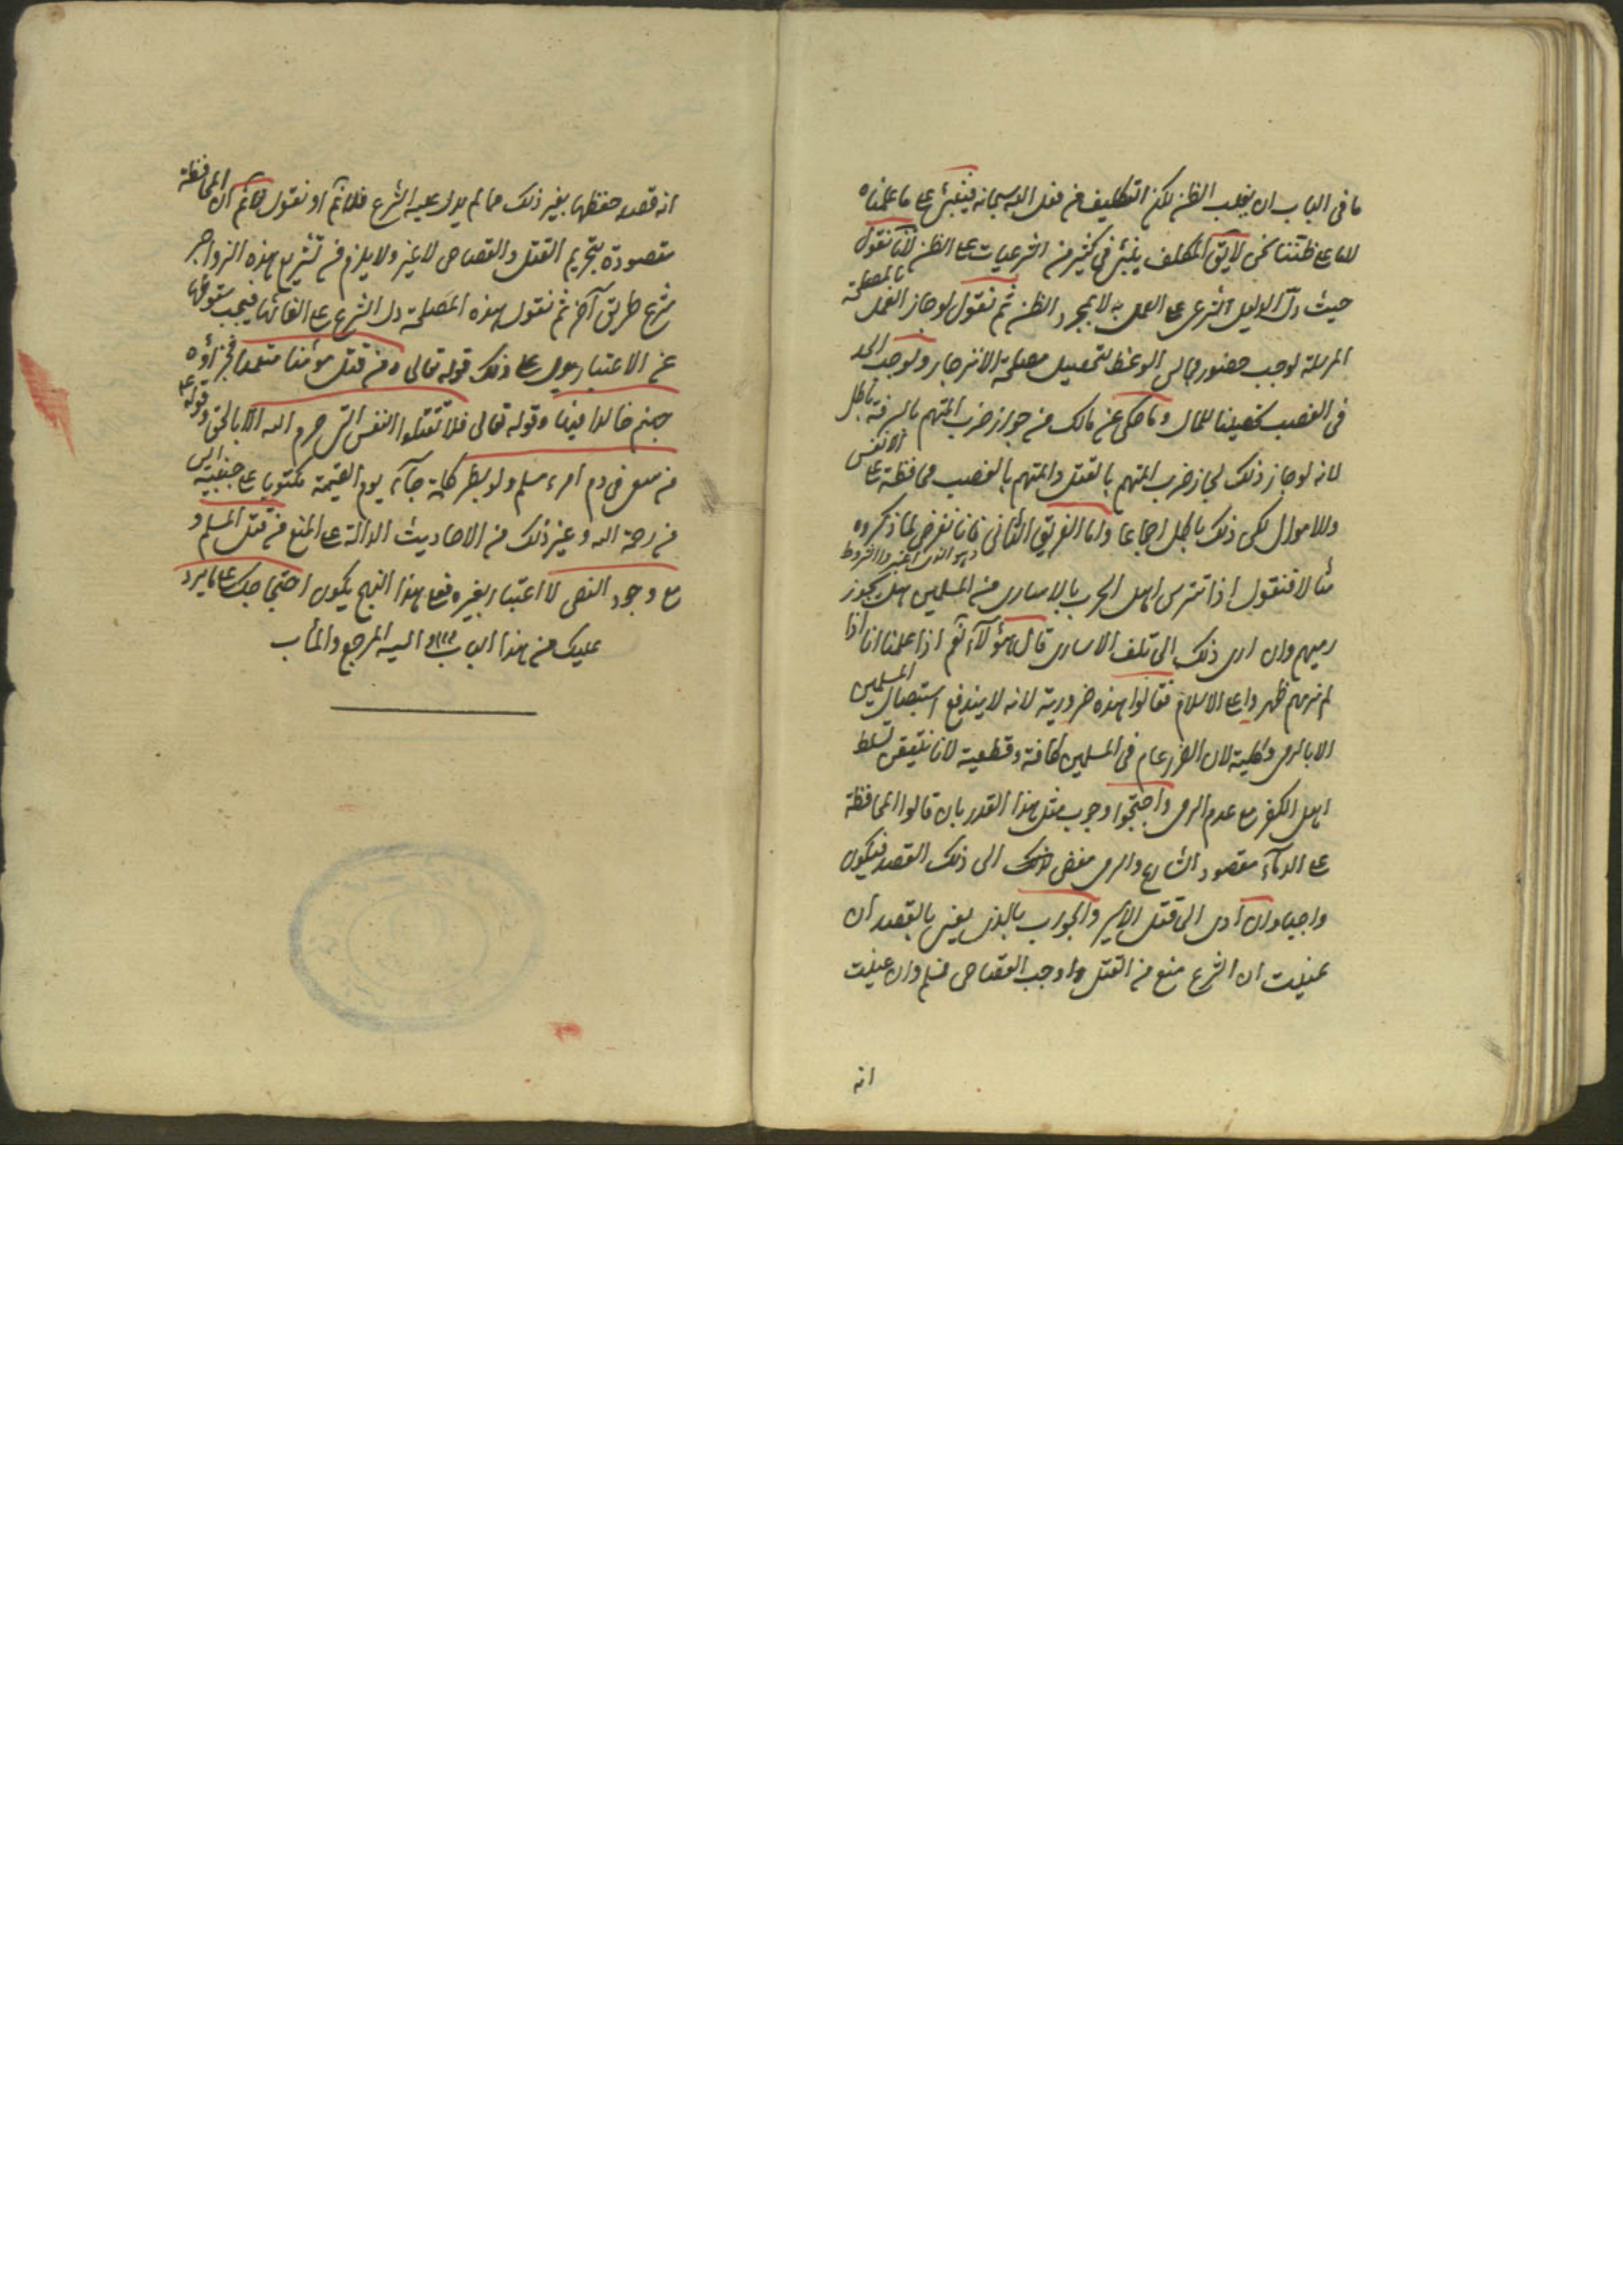 ما في الباب ان يغلب الظن لكن التكليف من فعل الله سبحانه فيبتنى على ما علمناه
لا ما على ظننا نحن لا يق المكلف يبتنى في كثير من الشرعيات على الظن لانا نقول
حيث دل الدليل الشرعى على العمل به لا بمجرد الظن ثم نقول لو جاز العمل بالمصلحة
المرسلة لوجب حضور مجالس الوعظ لتحصيل مصلحة الانزجار ولوجب الحد
في الغصب تحصينا للمال وما حكى عن مالك من جواز ضرب المتهم بالسرقة باطل
لانه لو جاز ذلك لجاز ضرب المتهم بالقتل والمتهم بالغصب محافظة على الانفس
والاموال لكن ذلك باطل اجماعا واما الفريق الثانى فانا نفرض لما ذكروه
وهو الذين اعتبروا الشروط
مثالا فنقول اذا تترس اهل الحرب بالاسارى من المسلمين هل يجوز
رميهم وان ادى ذلك الى تلف الاسارى قال هؤلاء نعم اذا علمنا انا اذا
لم نرمهم ظهروا على الاسلام فقالوا هذه ضرورية لانه لا يندفع استيصال المسلمين
الا بالرمى وكلية لان الضرر عام في المسلمين كافة وقطعية لانا نتيقن تسلط
اهل الكفر مع عدم الرمى واحتجوا وجوب مثل هذا القدر بان قالوا المحافظة
على الدماء مقصود الشارع والرمى مفض الى ذلك القصد فيكون
واجبا وان ادى الى قتل الاسير والجواب بالذى يعنى بالقصد ان
عنيت ان الشرع منع من القتل واوجب القصاص فسلم وان عنيت
انه
انه قصد حفظها بغير ذلك مما لم يدل عليه الشرع فلا نم او نقول لما نم ان المحافظة
مقصودة بتحريم القتل والقصاص لا غير ولا يلزم من تشريع هذه الزواجر
شرع طريق آخر ثم نقول هذه المصلحة دل الشرع على الغائها فيجب سقوطها
عن الاعتبار ويدل على ذلك قوله تعالى ومن قتل مؤمنا متعمدا فجزاؤه
جهنم خالدا فيها وقوله تعالى فلا تقتلوا النفس التى حرم الله الا بالحق وقوله ع
من سعى في دم امرء مسلم ولو بشطر كلمة جاء يوم القيمة مكتوبا على جبينه ايس
من رحمة الله وغير ذلك من الاحاديث الدالة على المنع من قتل المسلم و
مع وجود النص لا اعتبار بغيره فعلى هذا النهج يكون احتجاجك على ما يرد
عليك من هذا الباب واليه المرجع والمآب